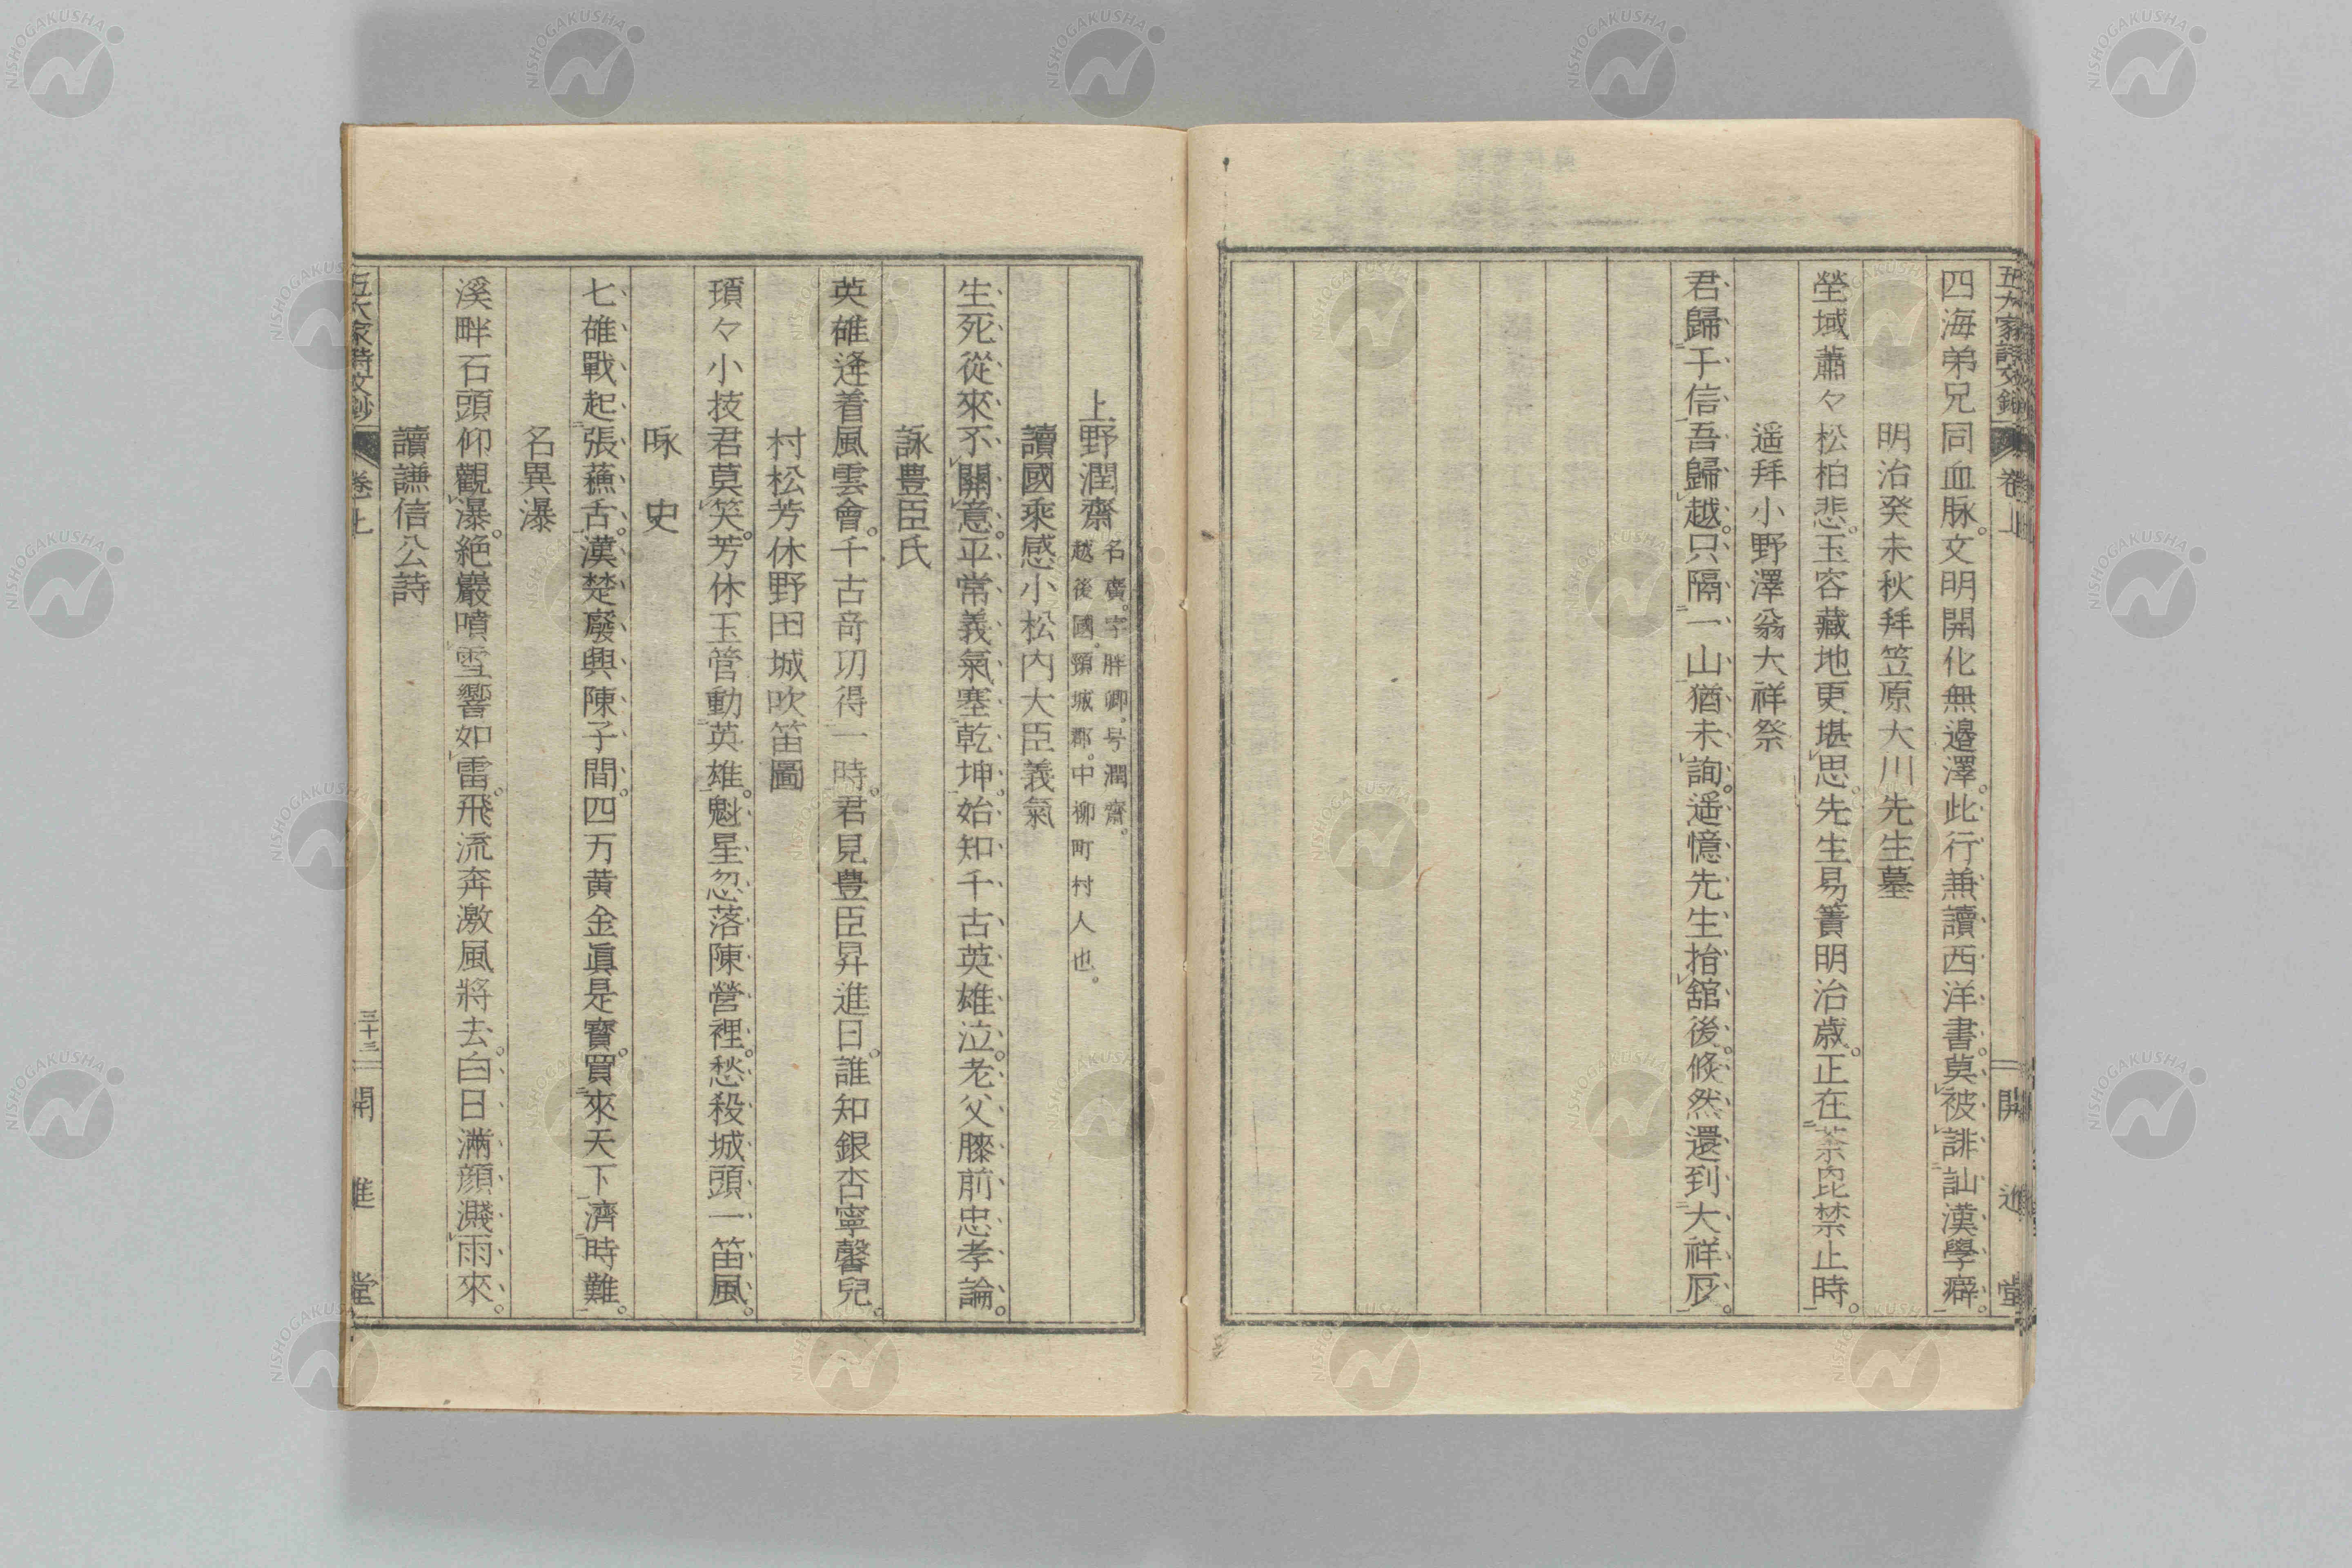 四海弟兄同血脉。文明開化無邊澤。此行兼讀西洋書。莫被誹訕漢學癖。
明治癸未秋拜笠原大川先生墓
塋域蕭々松柏悲。玉容藏地更堪思。先生易簀明治歲。正在茶毘禁止時。
遥拜小野澤翁大祥祭
君歸于信吾歸越。只隔一山猶未詢。遥憶先生捐舘後。倏然還到大祥辰。
上野潤齋
名廣。字胖卿。号潤齋。
越後國。頸城郡。中柳町村人也。
讀國乘感小松內大臣義氣
生死從來不關意。平常義氣塞乾坤。始知千古英雄泣。老父膝前忠孝論。
詠豊臣氏
英雄逢着風雲會。千古奇功得一時。君見豊臣昇進日。誰知銀杏寧馨兒。
村松芳休野田城吹笛圖
瑣々小技君莫笑。芳休玉管動英雄。魁星忽落陳營裡。愁殺城頭一笛風。
咏史
七雄戰起張蘓舌。漢楚廢興陳子間。四万黃金眞是寶。買來天下濟時難。
名異瀑
溪畔石頭仰觀瀑。絶巖噴雪響如雷。飛流奔激風將去。白日滿顔濺雨來。
讀謙信公詩
五大家詩文鈔
卷上
三十三
開進堂